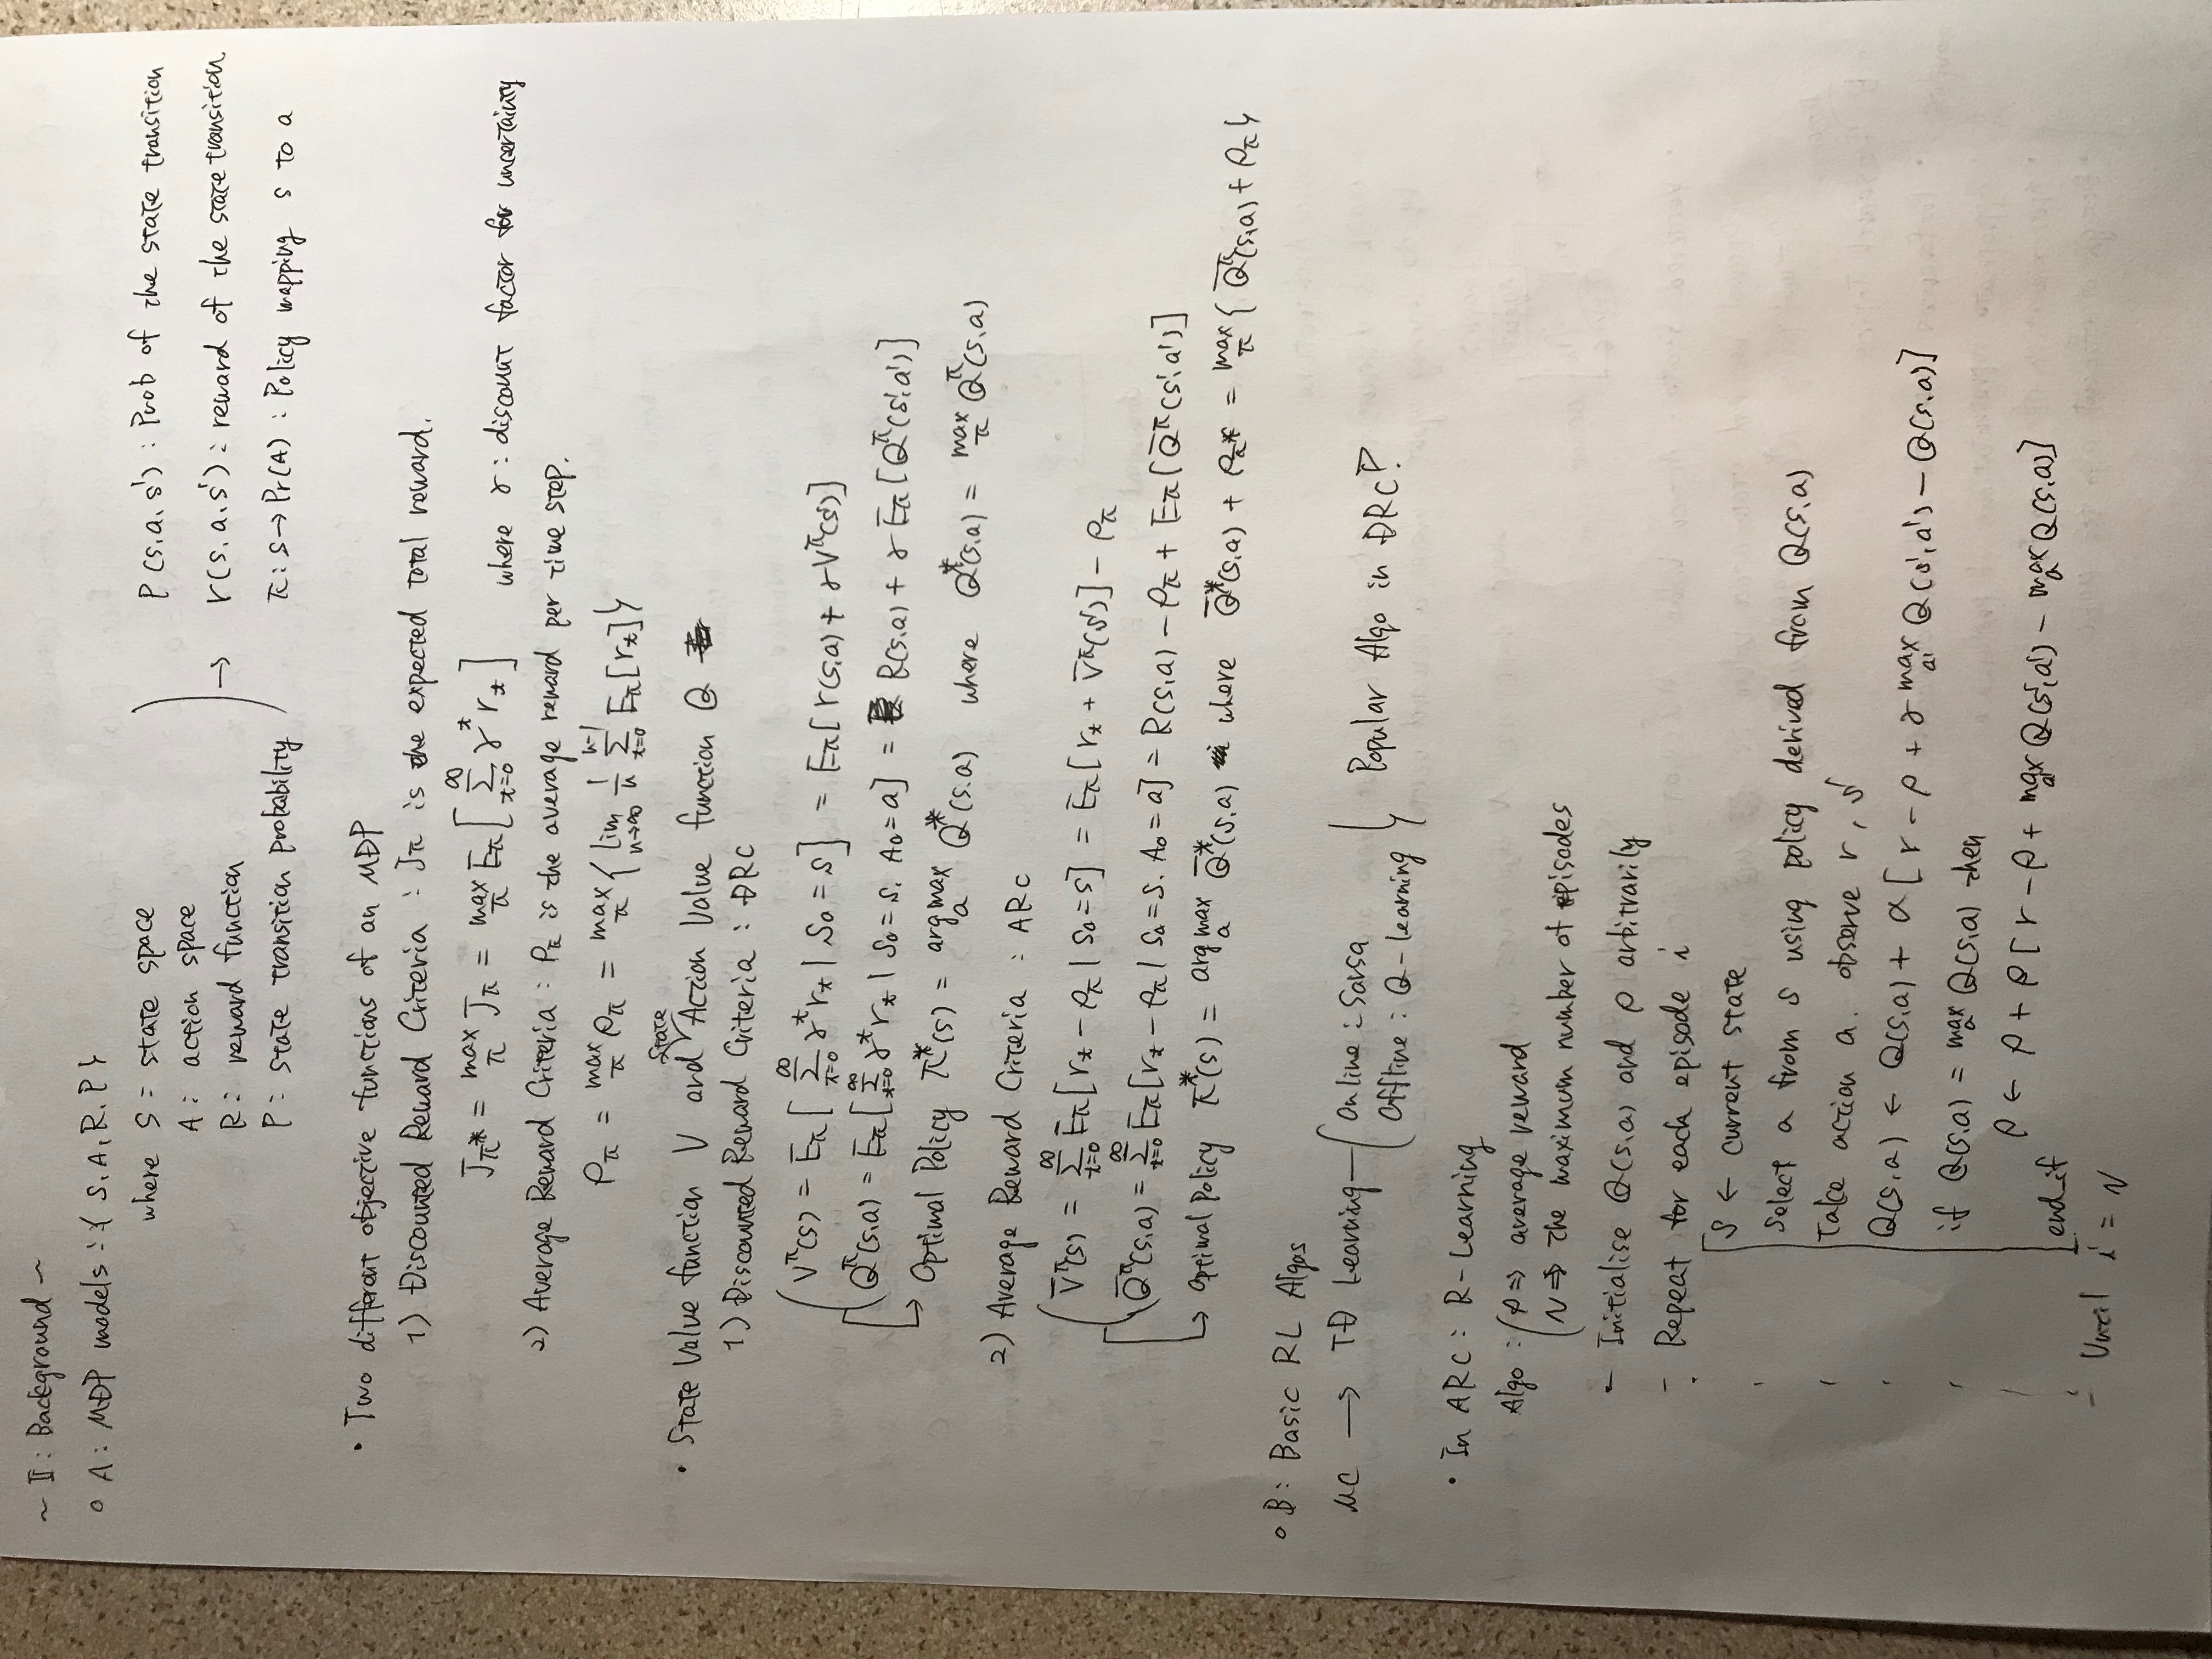 ~ II : Background ~
○ A : MDP models : { S, A, R, P }
where S = state space
A : action space
R : reward function
P : state transition probability
→ P(s, a, s') : Prob of the state transition
r(s, a, s') : reward of the state transition.
π : S → Pr(A) : Policy mapping s to a
• Two different objective functions of an MDP
1) Discounted Reward Criteria : Jπ is the expected total reward.
Jπ* = max_π Jπ = max_π Eπ[ Σ_{t=0}^{∞} γ^t r_t ] where γ : discount factor for uncertainty
2) Average Reward Criteria : ρπ is the average reward per time step.
ρπ = max_π ρπ = max_π { lim_{n→∞} 1/n Σ_{t=0}^{n-1} Eπ[r_t] }
• State Value function V and State Action Value function Q
1) Discounted Reward Criteria : DRC
V^π(s) = Eπ[ Σ_{t=0}^{∞} γ^t r_t | S₀ = s ] = Eπ[ r(s,a) + γV^π(s') ]
Q^π(s,a) = Eπ[ Σ_{t=0}^{∞} γ^t r_t | S₀ = s, A₀ = a ] = R(s,a) + γ Eπ[ Q^π(s',a') ]
↳ Optimal Policy π*(s) = argmax_a Q*(s,a) where Q*(s,a) = max_π Q^π(s,a)
2) Average Reward Criteria : ARC
V̄^π(s) = Σ_{t=0}^{∞} Eπ[ r_t − ρπ | S₀ = s ] = Eπ[ r_t + V̄^π(s') ] − ρπ
Q̄^π(s,a) = Σ_{t=0}^{∞} Eπ[ r_t − ρπ | S₀ = s, A₀ = a ] = R(s,a) − ρπ + Eπ[ Q̄^π(s',a') ]
↳ optimal Policy π*(s) = argmax_a Q̄*(s,a) where Q̄*(s,a) + ρπ* = max_π { Q̄^π(s,a) + ρπ }
○ B : Basic RL Algos
MC → TD Learning { Online : Sarsa
Offline : Q-learning } Popular Algo in DRC?
• In ARC : R-Learning
Algo : ρ ⇒ average reward
N ⇒ the maximum number of episodes
- Initialise Q(s,a) and ρ arbitrarily
- Repeat for each episode i
S ← current state
Select a from s using policy derived from Q(s,a)
Take action a. observe r, s'
Q(s,a) ← Q(s,a) + α [ r − ρ + γ max_a' Q(s',a') − Q(s,a) ]
if Q(s,a) = max_a Q(s,a) then
ρ ← ρ + ρ [ r − ρ + max_a' Q(s',a') − max_a Q(s,a) ]
end if
- Until i = N